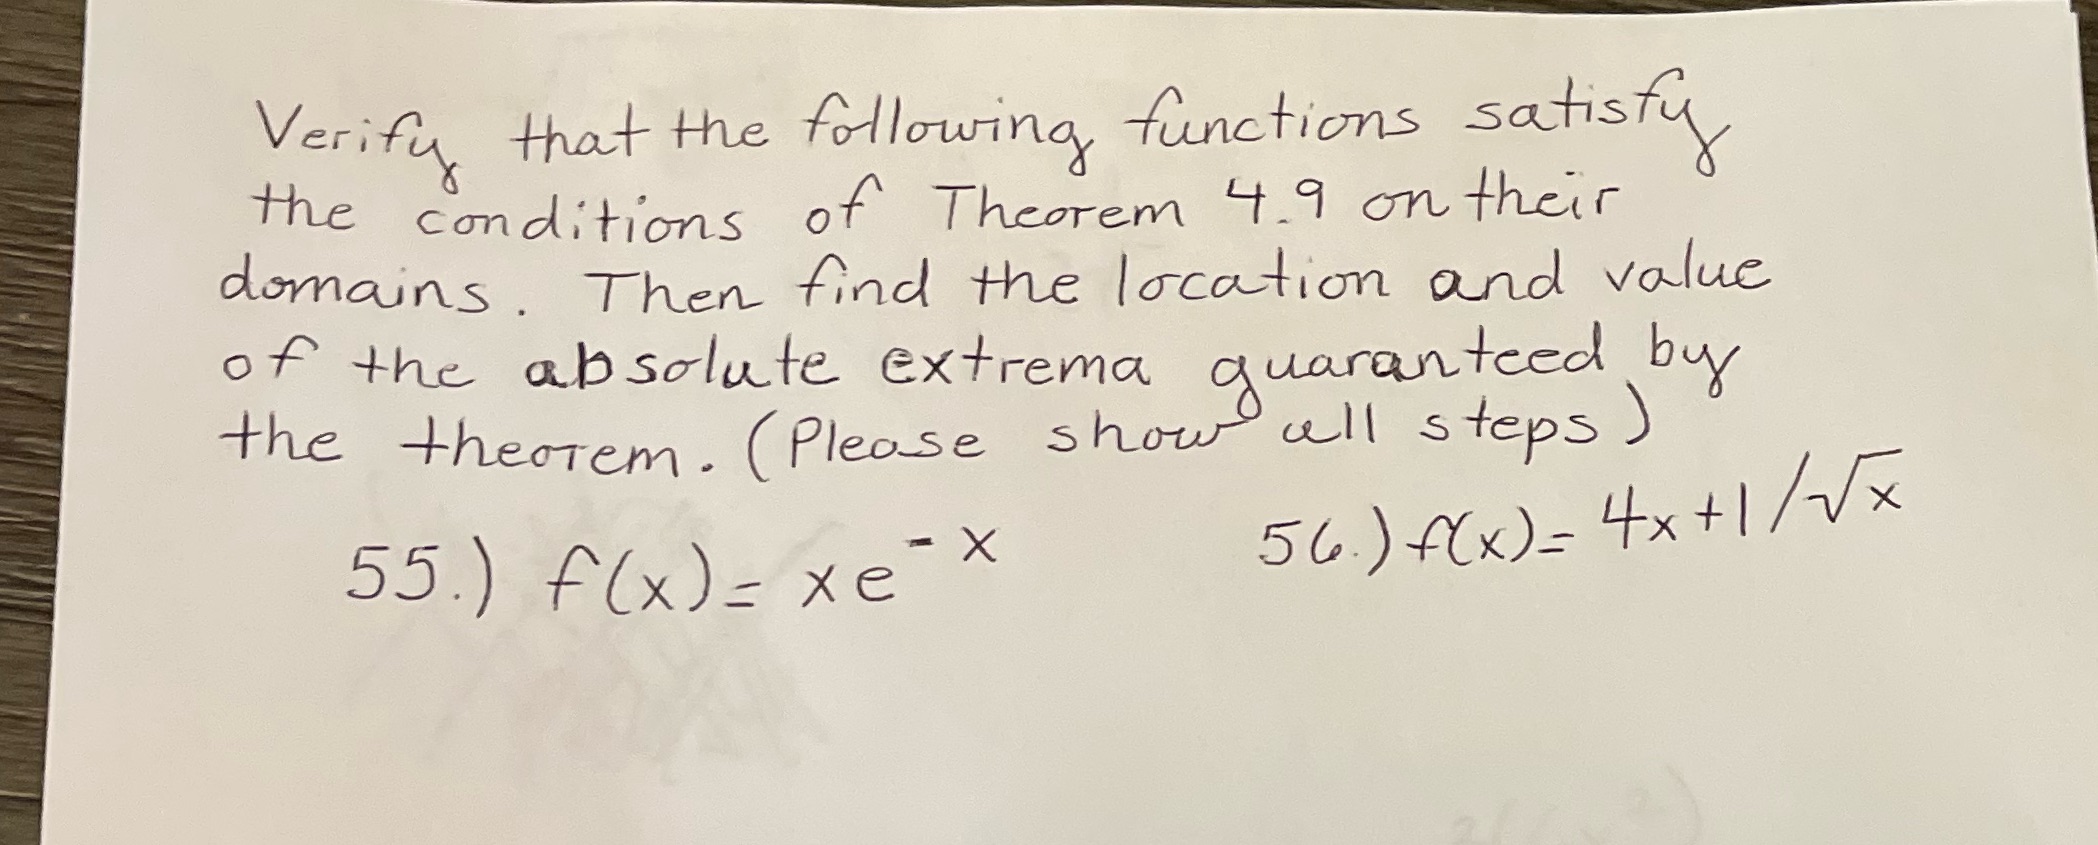 Verify that the following functions satisfy
the conditions of Theorem 4.9 on their
domains. Then find the location and value
of the absolute extrema guaranteed by
the theorem. (Please show all steps)
55.) f(x) = xe^{-x} 56.) f(x) = 4x+1/√x